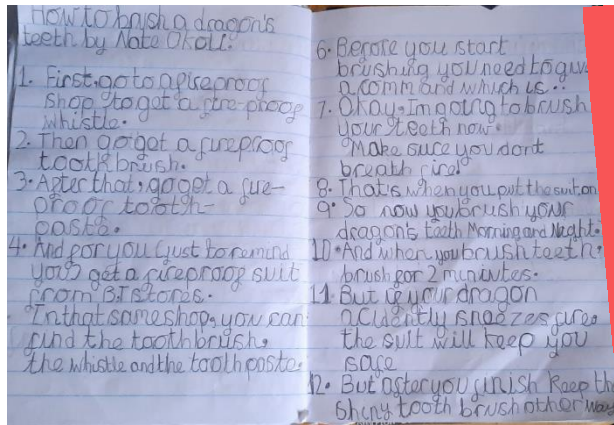 How to brush a dragon's
teeth by Nate Okoll.
1. First, go to a fireproof
shop to get a fire-proof
whistle.
2. Then go get a fireproof
toothbrush.
3. After that, go get a fire-
proof tooth-
paste.
4. And for you (just to remind
you) get a fireproof suit
from B.T stores.
In that same shop, you can
find the toothbrush,
the whistle and the toothpaste.
6. Before you start
brushing you need to give
a command which is..
7. Okay, Im going to brush
your teeth now.
Make sure you dont
breath fire!
8. That's when you put the suit on.
9. So now you brush your
dragon's teeth Morning and Night.
10. And when you brush teeth,
brush for 2 minutes.
11. But if your dragon
acidently sneezes fire,
the suit will keep you
safe
12. But after you finish keep the
shiny tooth brush other way